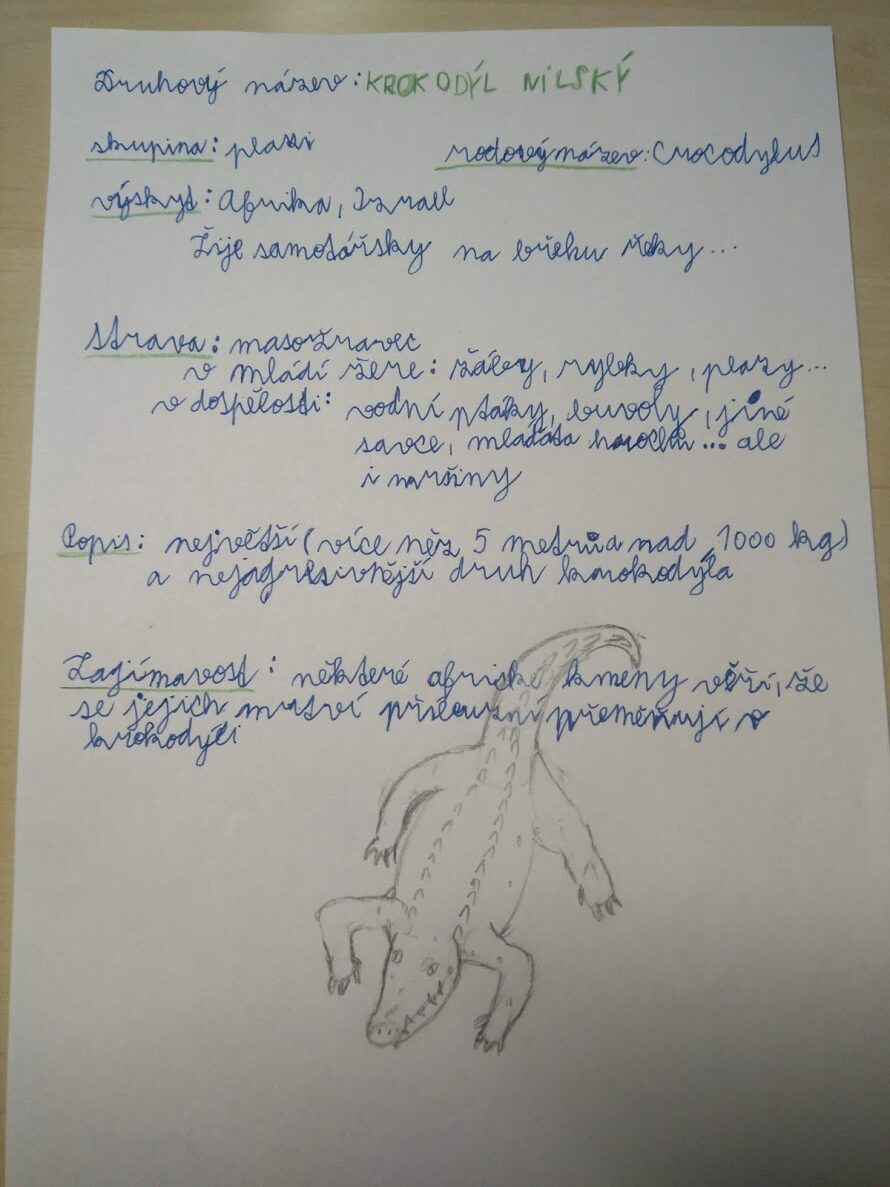 Druhový název: KROKODÝL NILSKÝ
skupina: plazi rodový název: Crocodylus
výskyt: Afrika, Izrael
Žije samotářsky na břehu řeky...
Strava: masožravec
v mládí žere: žáby, rybky, plazy...
v dospělosti: vodní ptáky, buvoly, jiné
savce, mláďata hrochů... ale
i mršiny
Popis: největší (více něž 5 metrů a nad 1000 kg)
a nejagresivnější druh krokodýla
Zajímavost: některé africké kmeny věří, že
se jejich mrtví příslušní přeměňují v
krokodýli